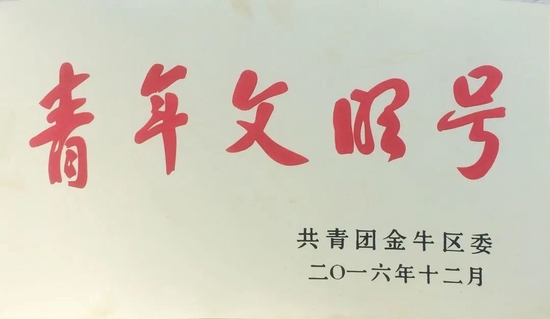 青年文明号
共青团金牛区委
二〇一六年十二月